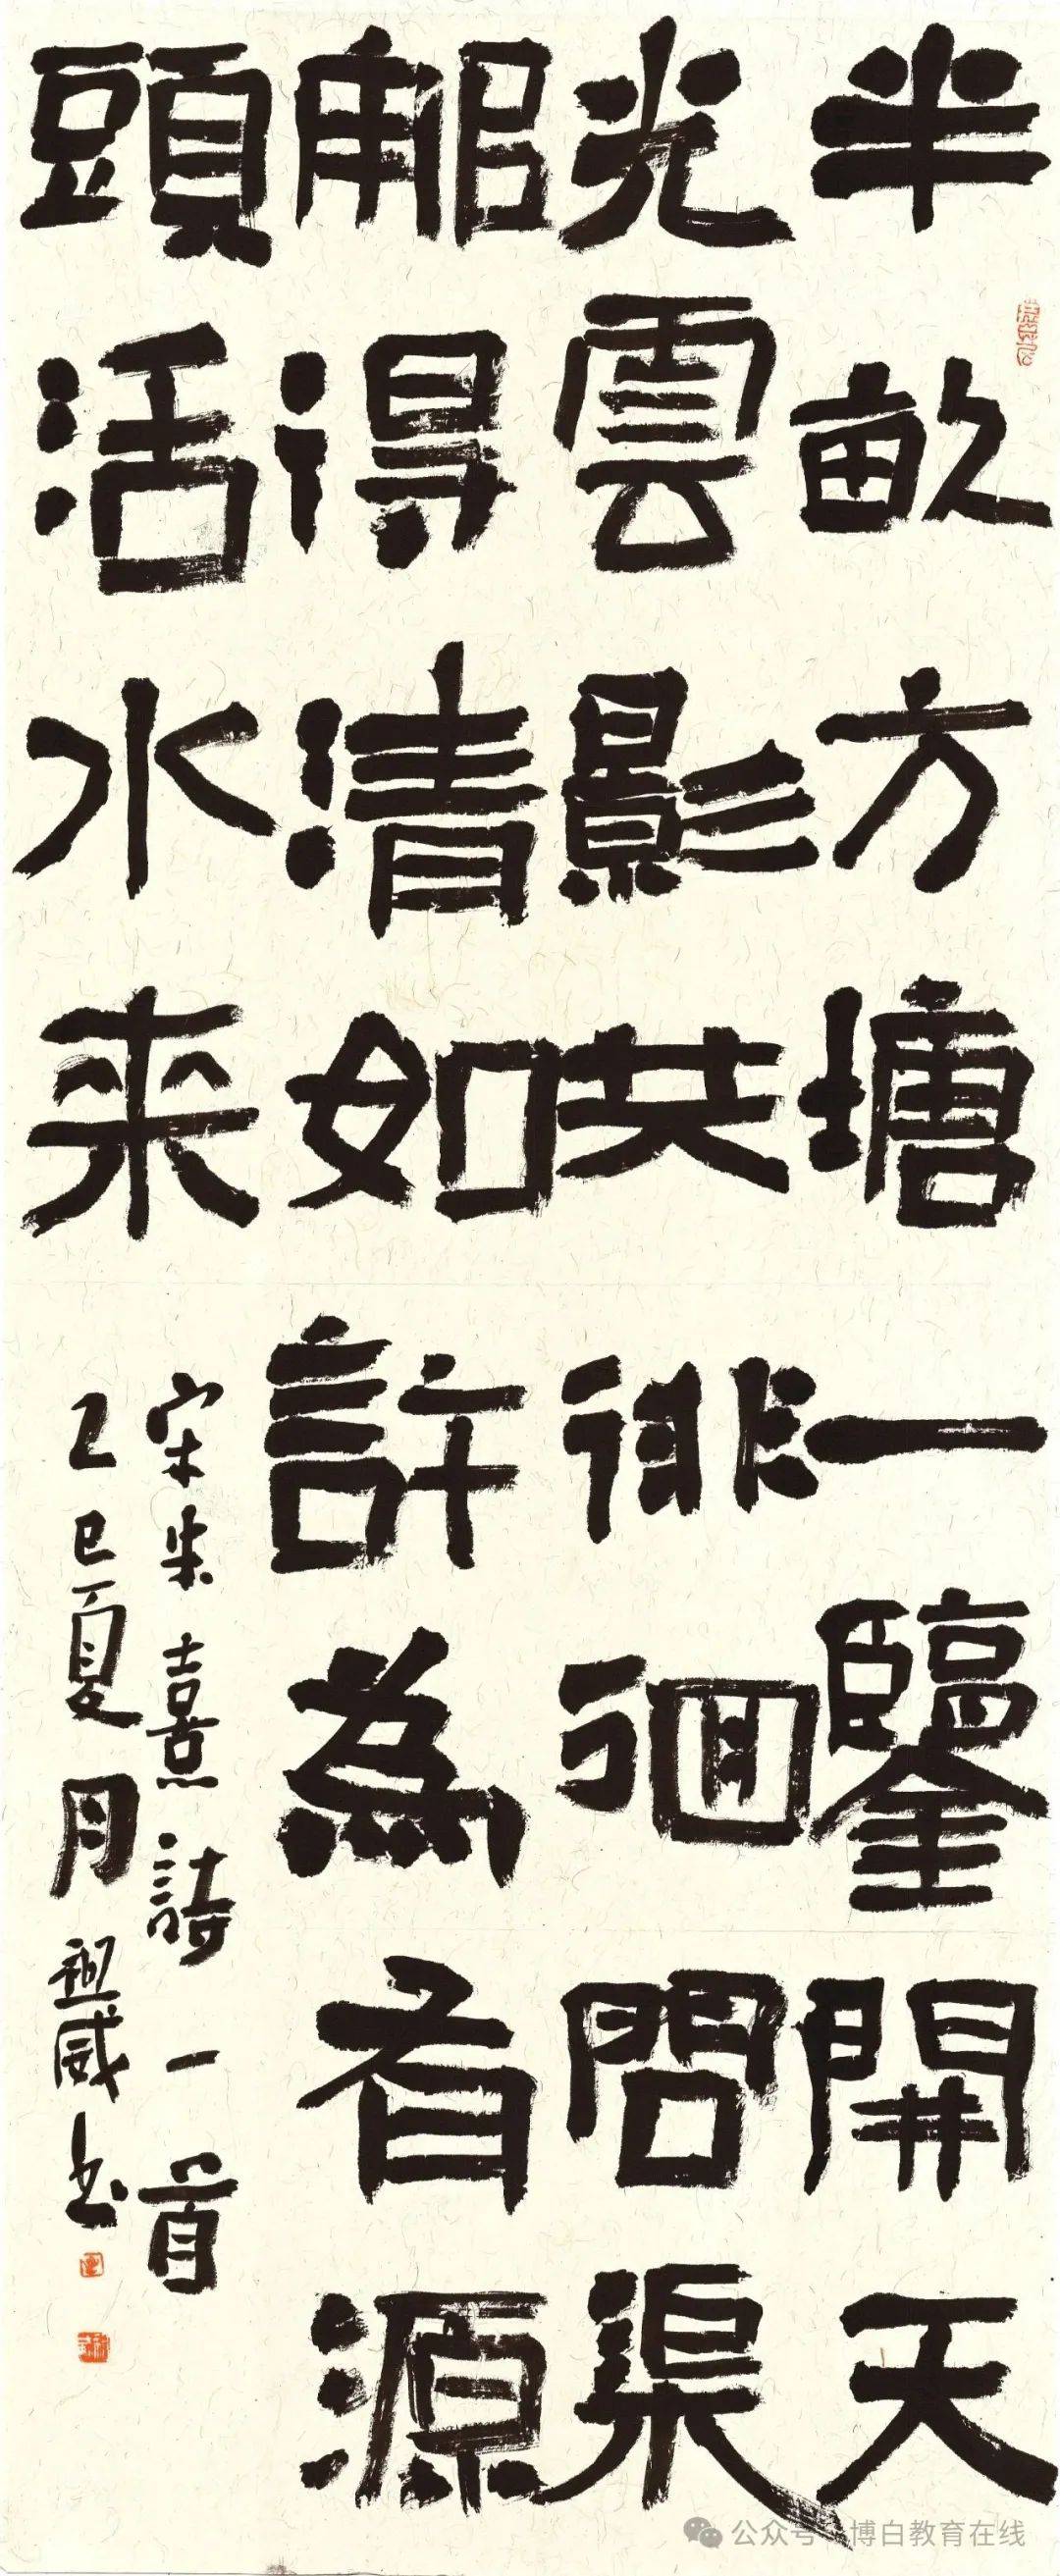 半畝方塘一鑒開天
光雲影共徘徊問渠
那得清如許為有源
頭活水来
宋朱熹詩一首
乙巳夏月 祖威书
公众号·博白教育在线